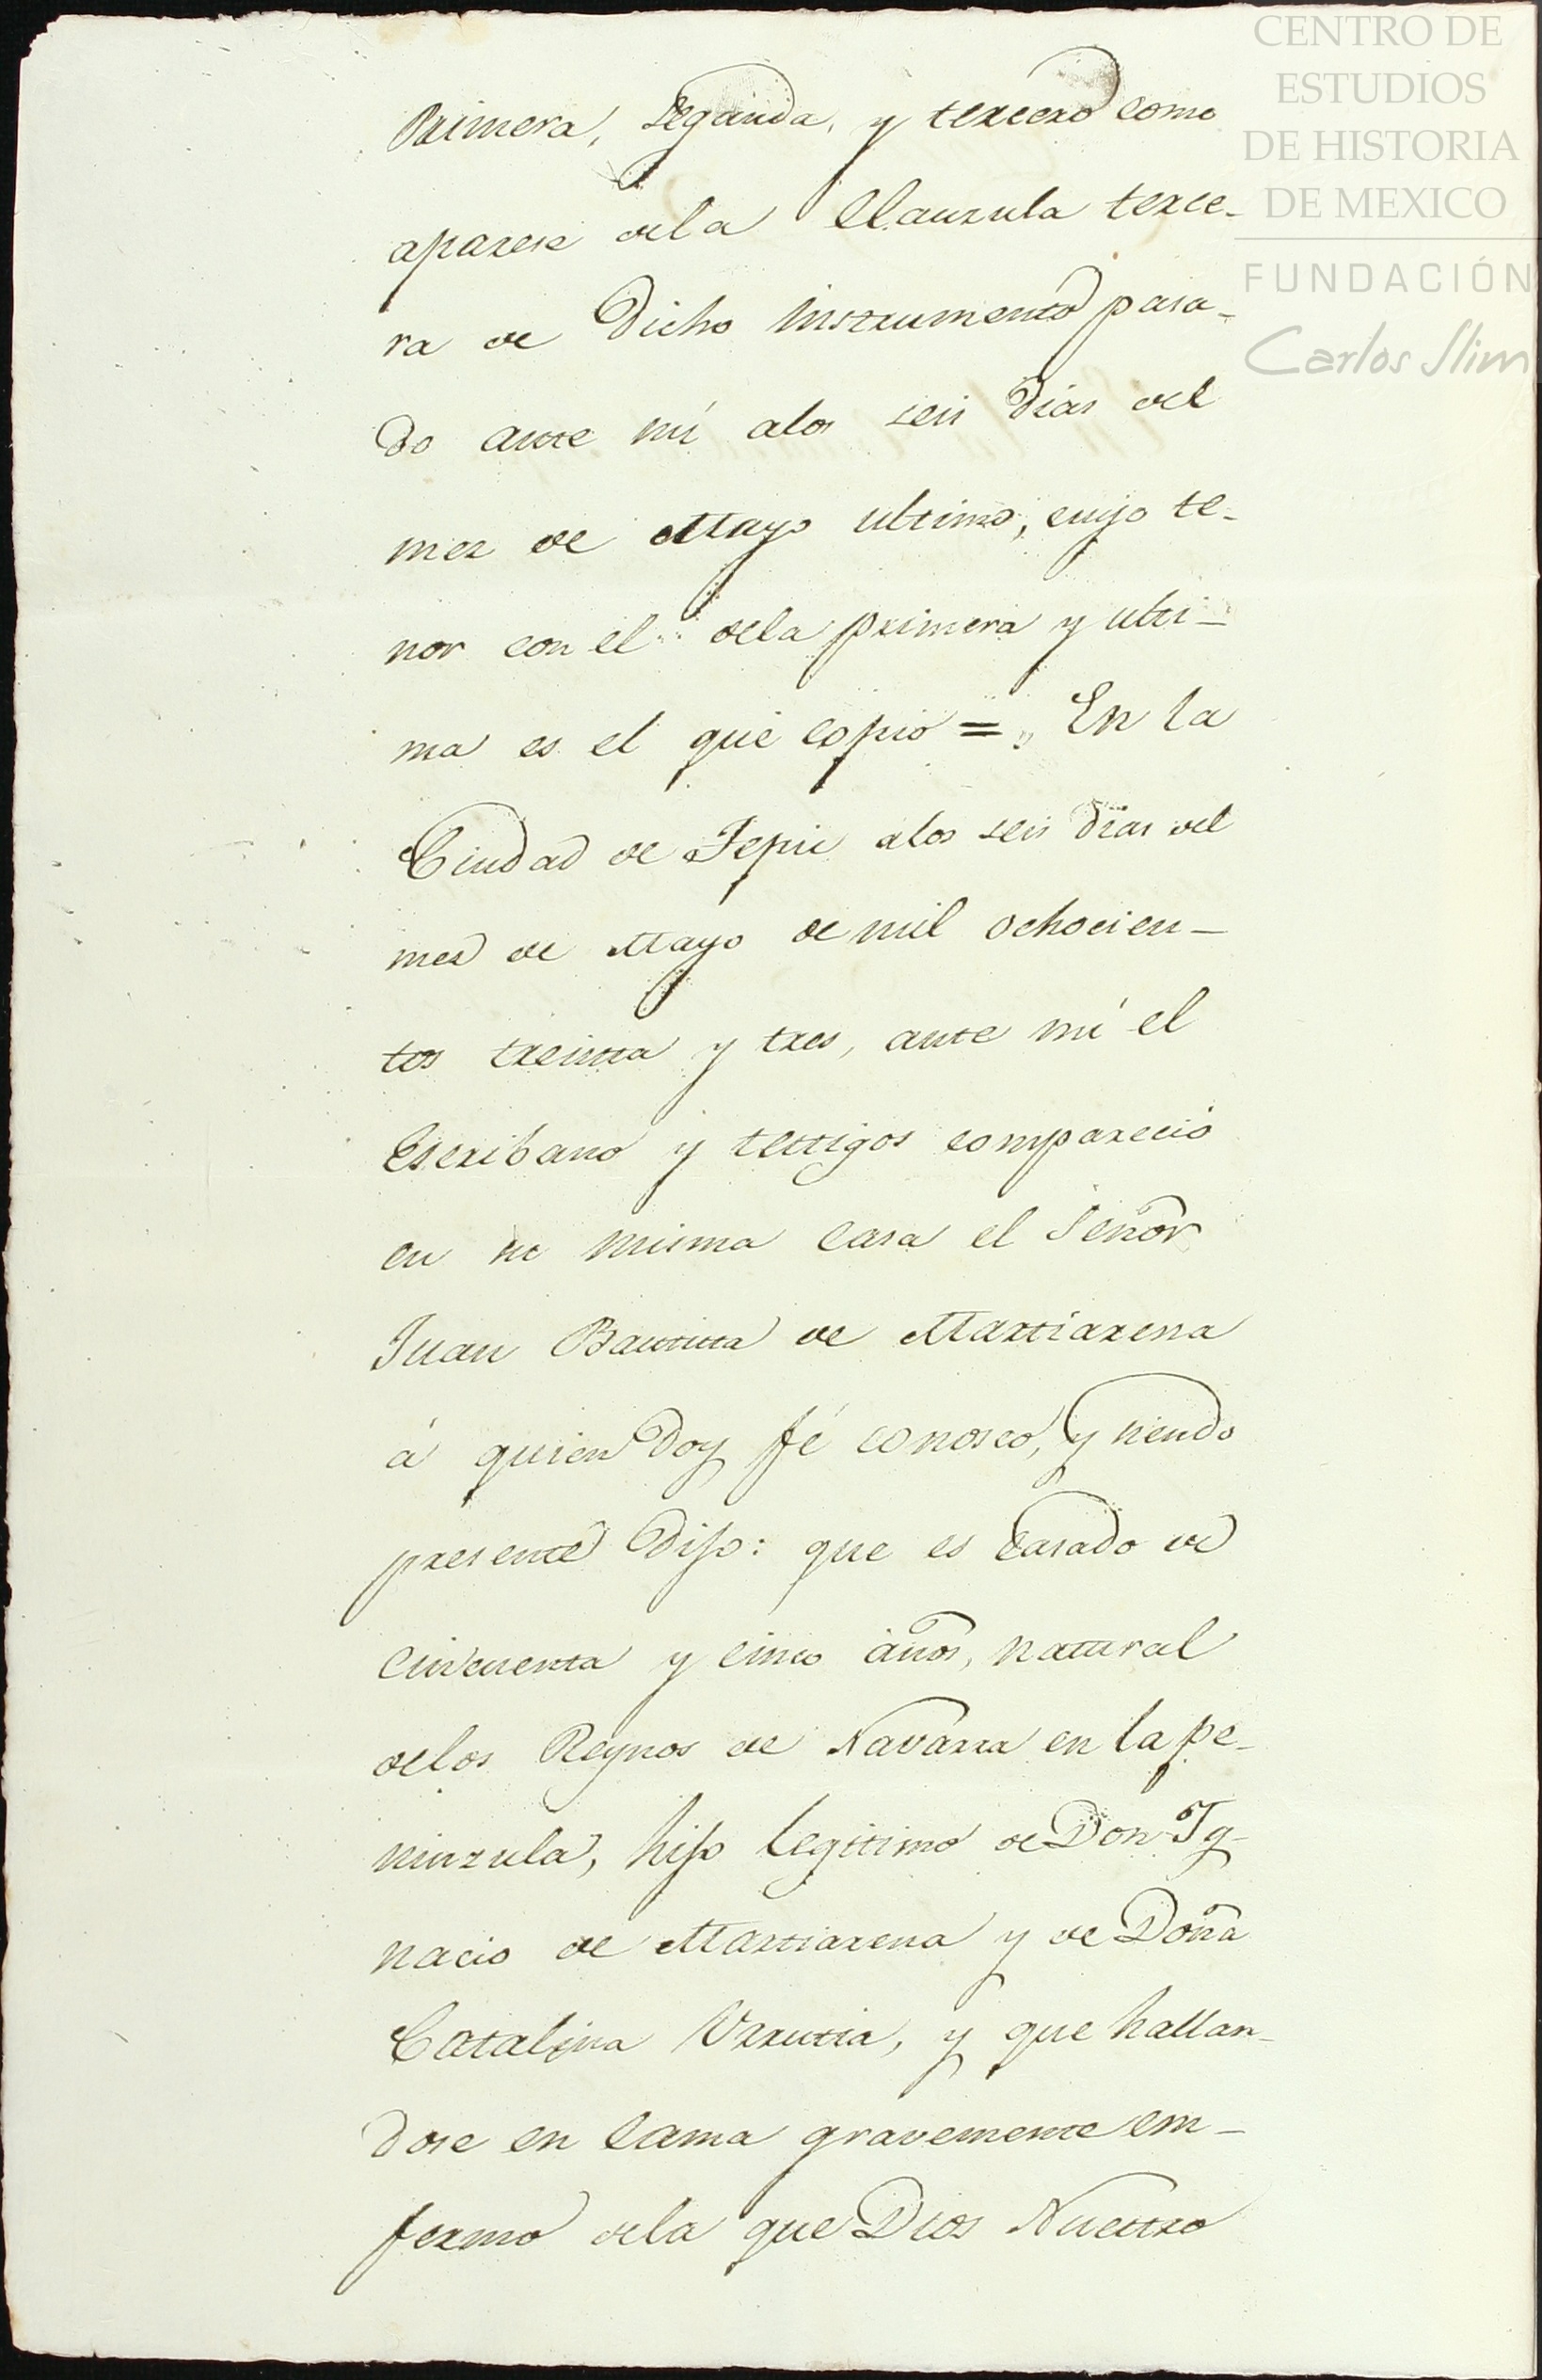 CENTRO DE
ESTUDIOS
DE HISTORIA
DE MEXICO
FUNDACIÓN
Carlos Slim
Primera, Segunda, y tercero como
aparese dela Clauzula terce-
ra de Dicho instrumento pasa-
do ante mí alos seis Dias del
mez de Mayo ultimo, cuyo te-
nor con el dela primera y ulti-
ma es el que copio =,, En la
Ciudad de Tepic alos seis dias del
mes de Mayo de mil ochocien-
tos treinta y tres, ante mí el
Escribano y testigos comparecio
en su misma casa el Señor
Juan Bautista de Martiarena
á quien Doy fé conosco, y siendo
presente Dijo: que es Casado de
cincuenta y cinco años, natural
delos Reynos de Navarra en la pe-
ninzula, hijo legitimo de Don Ig-
nacio de Martiarena y de Doña
Catalina Urrutia, y que hallan-
dose en cama gravemente em-
fermo dela que Dios Nuestro